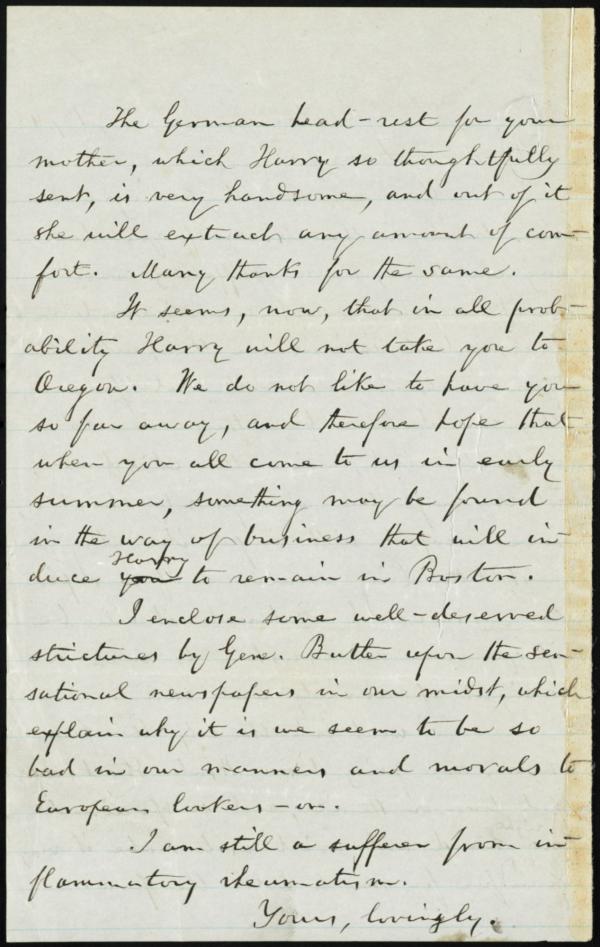 The German head-rest for your
mother, which Harry so thoughtfully
sent, is very handsome, and out of it
she will extract any amount of com-
fort. Many thanks for the same.
It seems, now, that in all prob-
ability Harry will not take you to
Oregon. We do not like to have you
so far away, and therefore hope that
when you all come to us in early
summer, something may be found
in the way of business that will in-
Harry
duce you to remain in Boston.
I enclose some well-deserved
strictures by Gen. Butler upon the sen-
sational newspapers in our midst, which
explain why it is we seem to be so
bad in our manners and morals to
European lookers-on.
I am still a sufferer from in-
flammatory rheumatism.
Yours, lovingly.